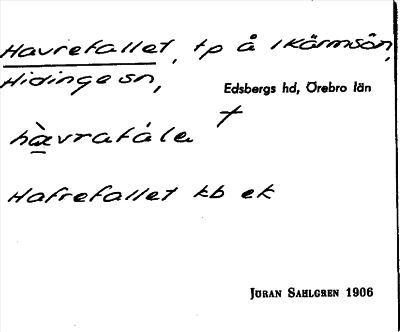 Havrefallet, tp å Kärmsön,
Hidinge sn,
Edsbergs hd, Örebro län
+
hàvrafála
Hafrefallet kb ek
JÖRAN SAHLGREN 1906